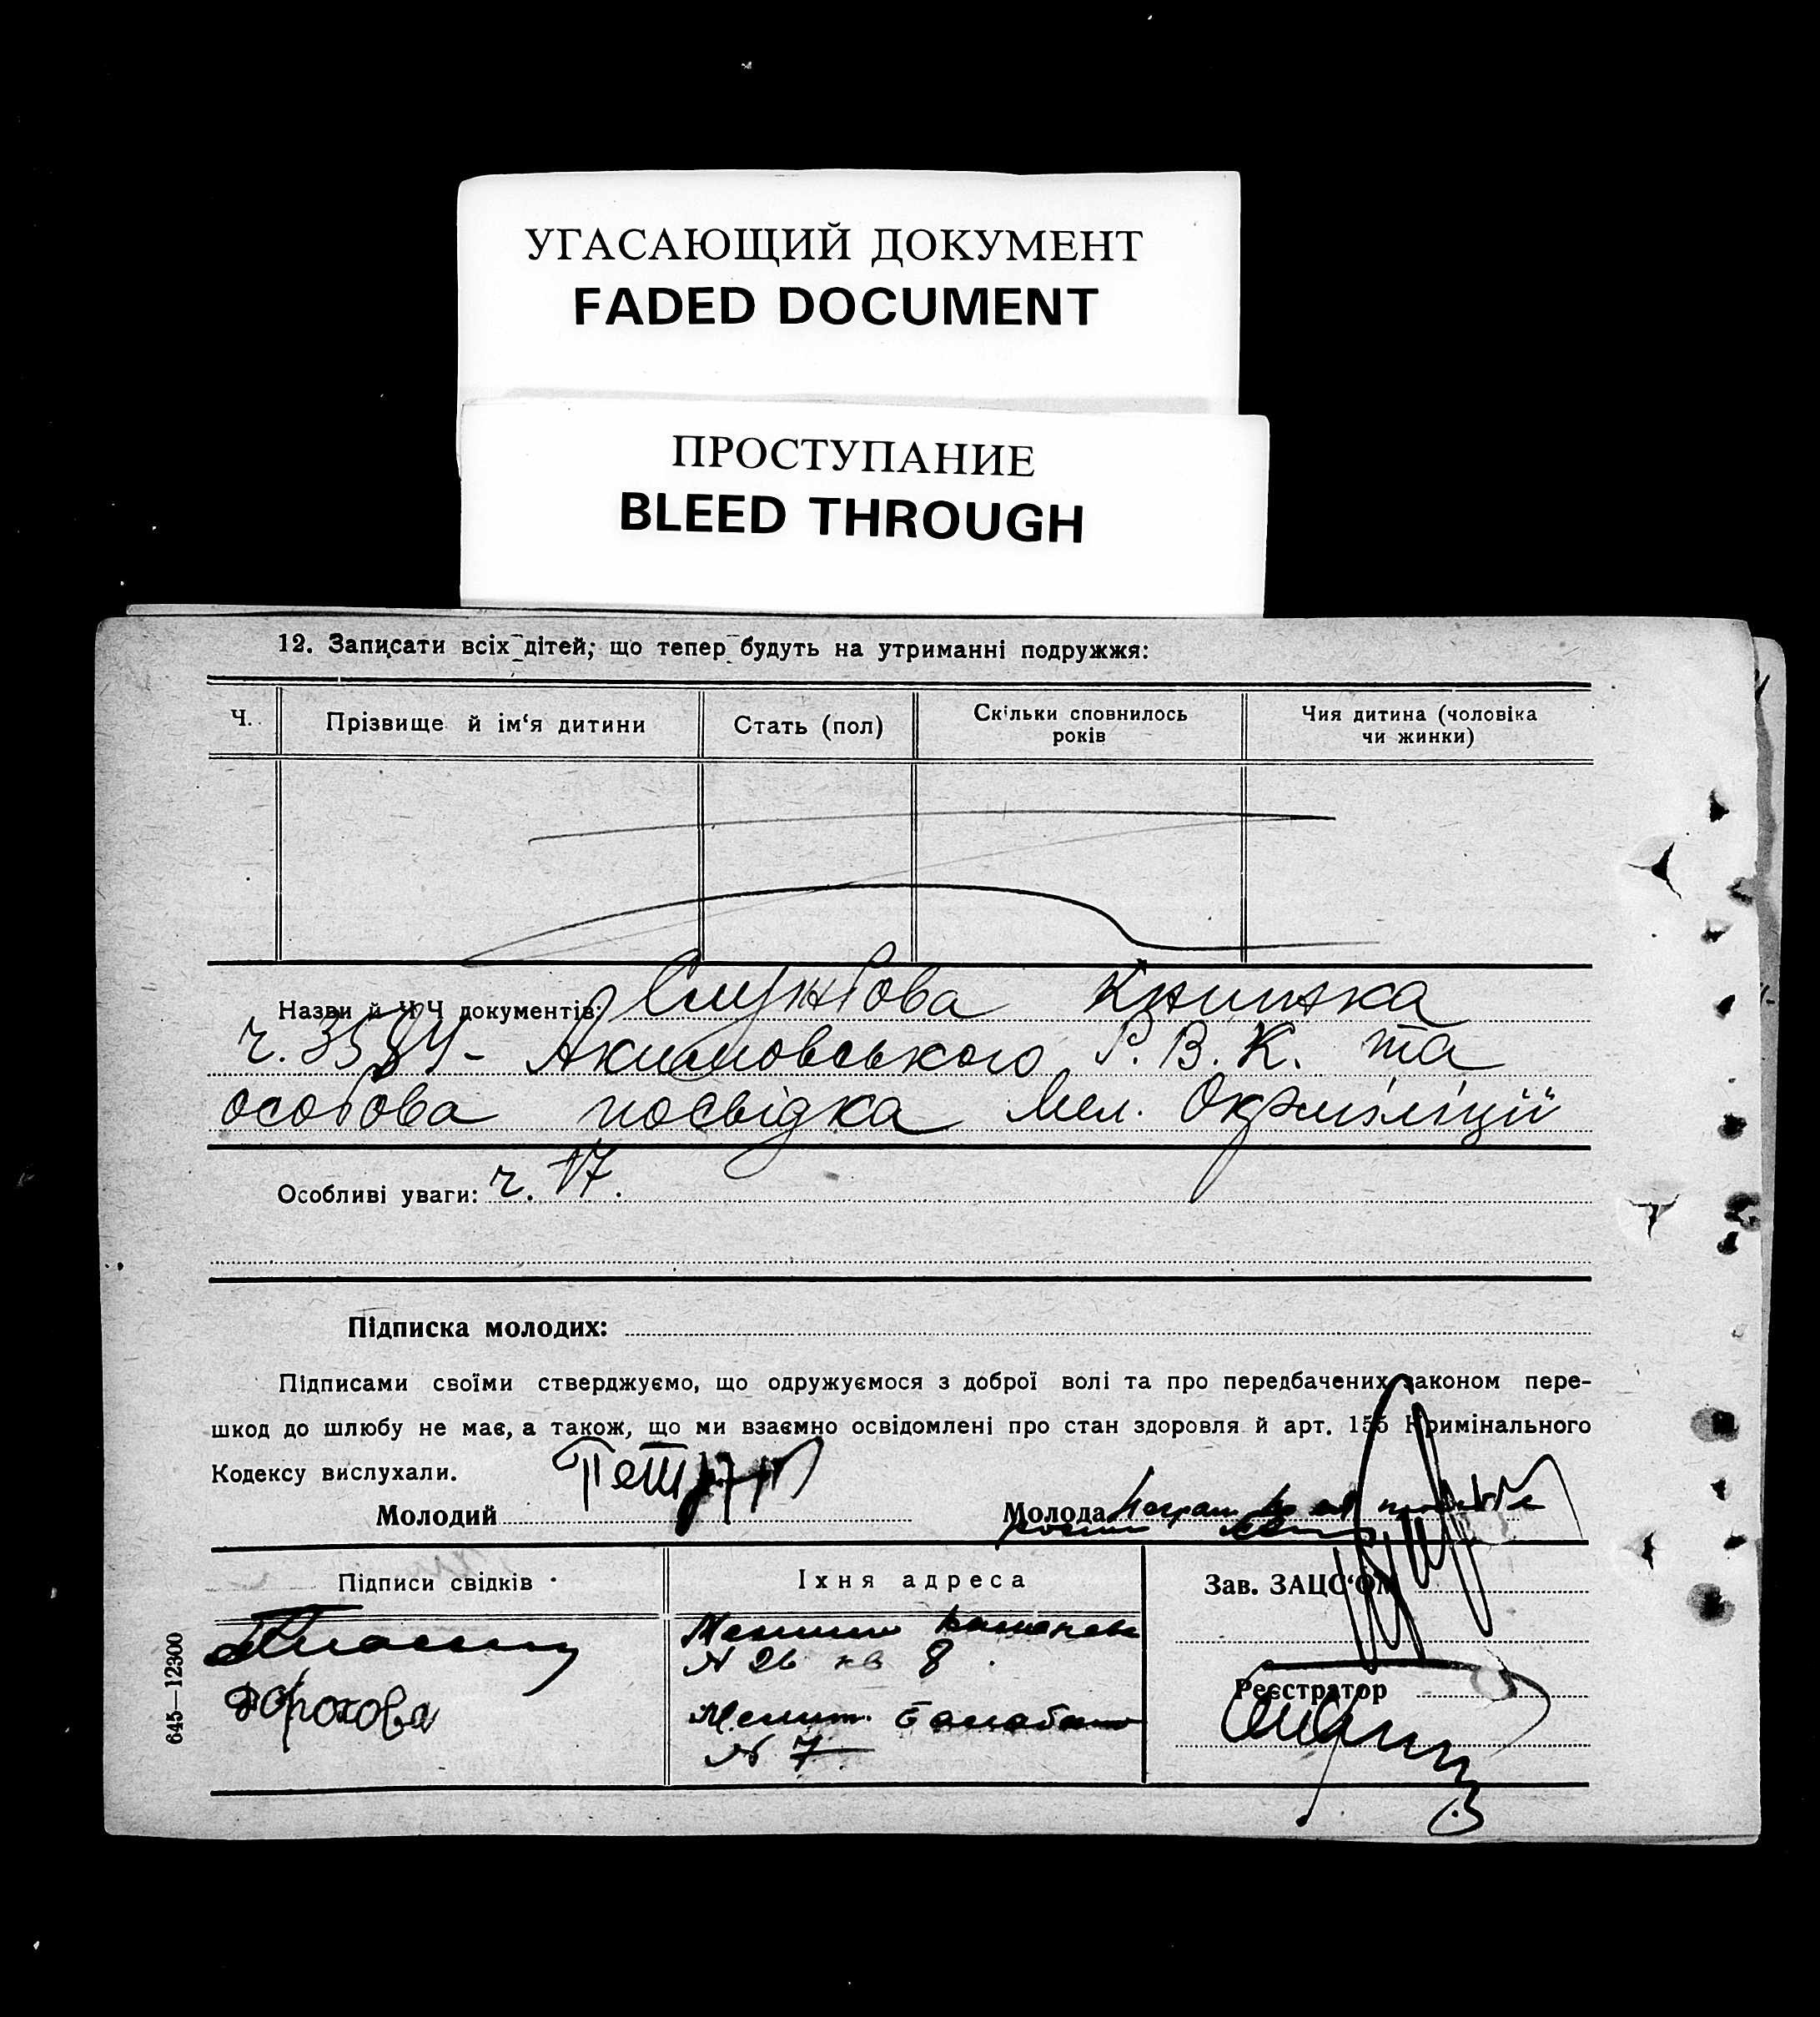 УГАСАЮЩИЙ ДОКУМЕНТ
FADED DOCUMENT
ПРОСТУПАНИЕ
BLEED THROUGH
12. Записати всіх дітей, що тепер будуть на утриманні подружжя:
Ч. Прізвище й ім‘я дитини Стать (пол) Скільки сповнилось років Чия дитина (чоловіка чи жинки)
Назви й Ч Ч документів: Службова Книжка
ч. 3584 - Акимовського Р. В. К. та
особова посвідка Мел. Окрміліції
Особливі уваги: ч. 17.
Підписка молодих:
Підписами своїми стверджуємо, що одружуємося з доброї волі та про передбачених законом пере-
шкод до шлюбу не має, а також, що ми взаємно освідомлені про стан здоровля й арт. 155 Кримінального
Кодексу вислухали.
Молодий Молода
Підписи свідків Їхня адреса Зав. ЗАЦС‘ОМ
№ 26 кв 8
Дорохова Мелит.
№ 7
Реєстратор
645—12300